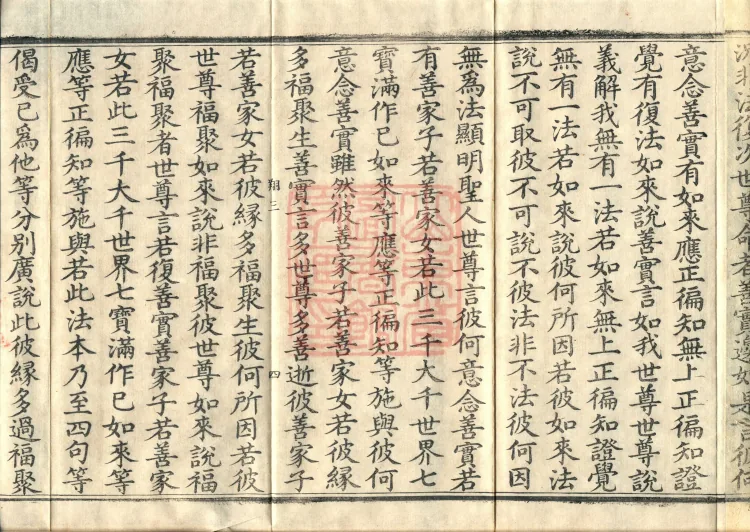 法非法復次世尊命者善實邊如是言彼何
意念善實有如來應正徧知無上正徧知證
覺有復法如來說善實言如我世尊世尊說
義解我無有一法若如來無上正徧知證覺
無有一法若如來說彼何所因若彼如來法
說不可取彼不可說不彼法非不法彼何因
無爲法顯明聖人世尊言彼何意念善實若
有善家子若善家女若此三千大千世界七
寶滿作已如來等應等正徧知等施與彼何
意念善實雖然彼善家子若善家女若彼緣
多福聚生善實言多世尊多善逝彼善家子
翔三
四
若善家女若彼緣多福聚生彼何所因若彼
世尊福聚如來說非福聚彼世尊如來說福
聚福聚者世尊言若復善實善家子若善家
女若此三千大千世界七寶滿作已如來等
應等正徧知等施與若此法本乃至四句等
偈受已爲他等分别廣說此彼緣多過福聚